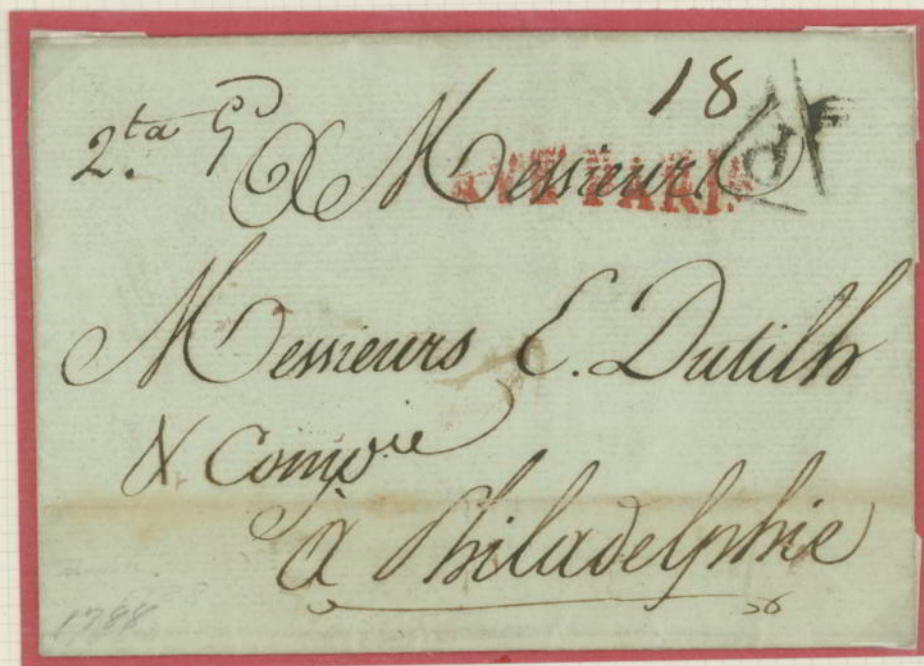 18
2.ta
A Messieurs
PARIS
P
Messieurs E. Dutilh
& Compie
à Philadelphie
1788